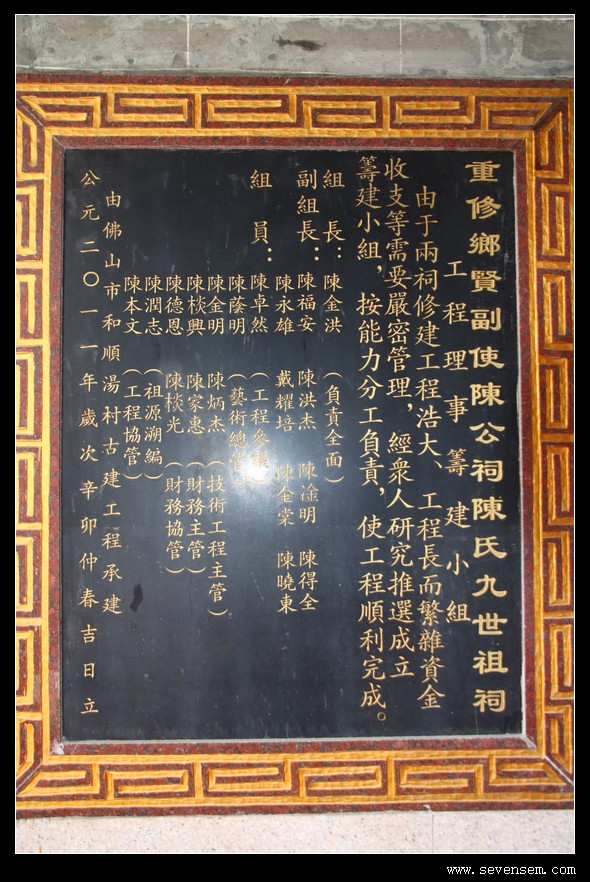 重修鄉賢副使陳公祠陳氏九世祖祠
工程理事籌建小組
由于兩祠修建工程浩大、工程長而繁雜資金
收支等需要嚴密管理，經衆人研究推選成立
籌建小組，按能力分工負責，使工程順利完成。
組長：陳金洪（負責全面）
副組長：陳福安 陳洪杰 陳淦明 陳得全
陳永雄 戴耀培 陳金棠 陳曉東
組員：陳卓然（工程參議）
陳蔭明（藝術總管）
陳金明 陳炳杰（技術工程主管）
陳棪興 陳家惠（財務主管）
陳德恩 陳棪光（財務協管）
陳潤志（祖源溯編）
陳本文（工程協管）
由佛山市和順湯村古建工程承建
公元二〇一一年歲次辛卯仲春吉日立
www.sevensem.com